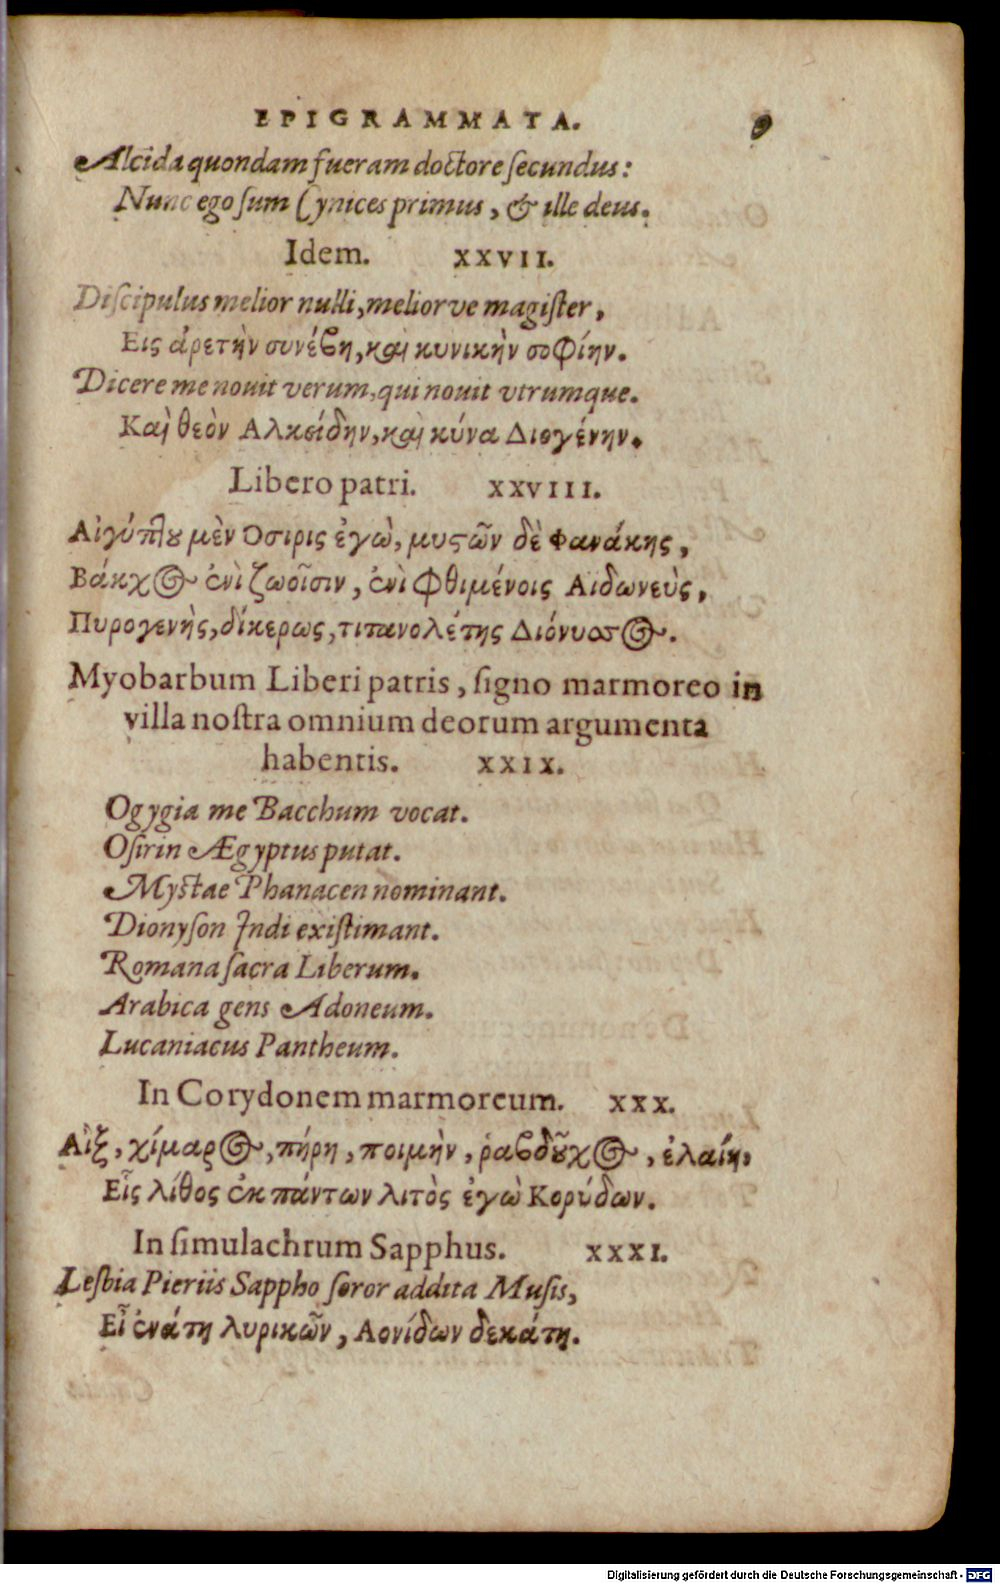 EPIGRAMMATA. 9
Alcida quondam fueram doctore ſecundus:
Nunc ego ſum Cynices primus, & ille deus.
Idem. XXVII.
Diſcipulus melior nulli, meliorve magiſter,
Εις ἀρετὴν συνέβη, καὶ κυνικὴν σοφίην.
Dicere me nouit verum, qui nouit vtrumque.
Καὶ θεὸν Αλκείδην, καὶ κύνα Διογένην.
Libero patri. XXVIII.
Αἰγύπτου μὲν Οσιρις ἐγὼ, μυστῶν δὲ Φανάκης,
Βάκχος ἐνὶ ζωοῖσιν, ἐνὶ φθιμένοις Αιδωνεὺς,
Πυρογενὴς, δίκερως, τιτανολέτης Διόνυσος.
Myobarbum Liberi patris, ſigno marmoreo in
villa noſtra omnium deorum argumenta
habentis. XXIX.
Ogygia me Bacchum vocat.
Oſirin Ægyptus putat.
Myſtae Phanacen nominant.
Dionyſon Indi exiſtimant.
Romana ſacra Liberum.
Arabica gens Adoneum.
Lucaniacus Pantheum.
In Corydonem marmoreum. XXX.
Αἲξ, χίμαρος, πήρη, ποιμὴν, ῥαβδοῦχος, ἐλαίη,
Εἷς λίθος ἐκ πάντων λιτὸς ἐγὼ Κορύδων.
In ſimulachrum Sapphus. XXXI.
Lesbia Pieriis Sappho ſoror addita Muſis,
Εἶ ἐνάτη λυρικῶν, Αονίδων δεκάτη.
Digitalisierung gefördert durch die Deutsche Forschungsgemeinschaft - DFG